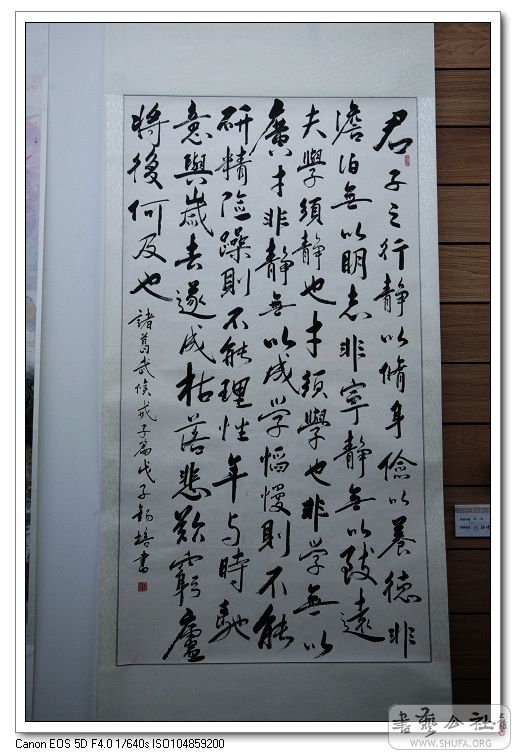 君子之行静以脩身儉以養德非
澹泊無以明志非寧静無以致遠
夫學須静也才須學也非学無以
廣才非静無以成学慆慢則不能
研精险躁則不能理性年与時馳
意與歲去遂成枯落悲歎窮廬
将後何及也
諸葛武侯戒子篇戊子杨培書
書藝公社
WWW.SHUFA.ORG
Canon EOS 5D F4.0 1/640s ISO104859200